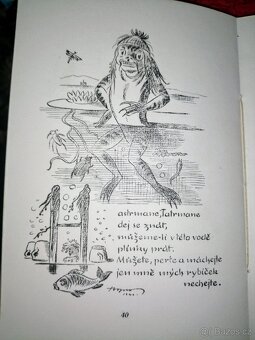 astrmane, Tatrmane
dej se znát,
můžeme-li v této vodě
plínky prát.
Můžete, perte a máchejte
jen mně mých rybiček
nechejte.
40